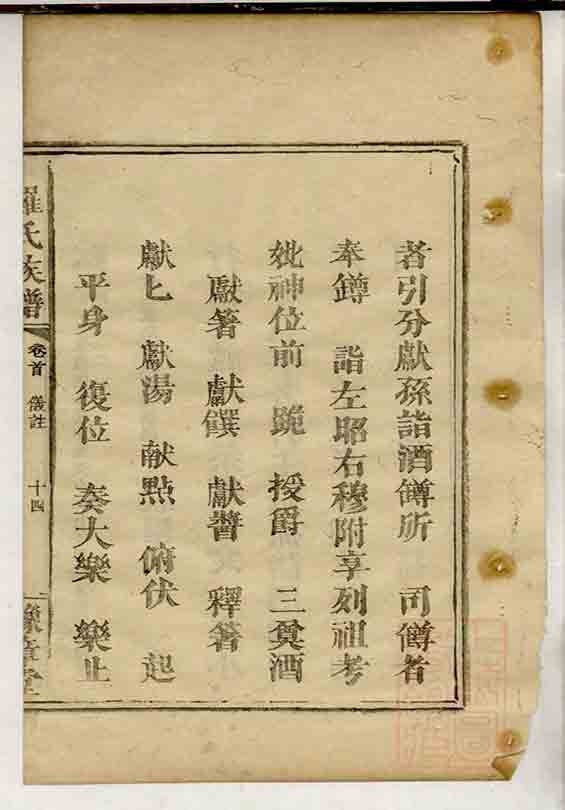 者引分獻孫詣酒罇所　司罇者
奉罇　詣左昭右穆附享列祖考
妣神位前　跪　授爵　三奠酒
獻箸　獻饌　獻醬　釋箸
獻匕　獻湯　献點　俯伏　起
平身　復位　奏大樂　樂止
羅氏族譜　卷首　儀註　十四　豫章堂